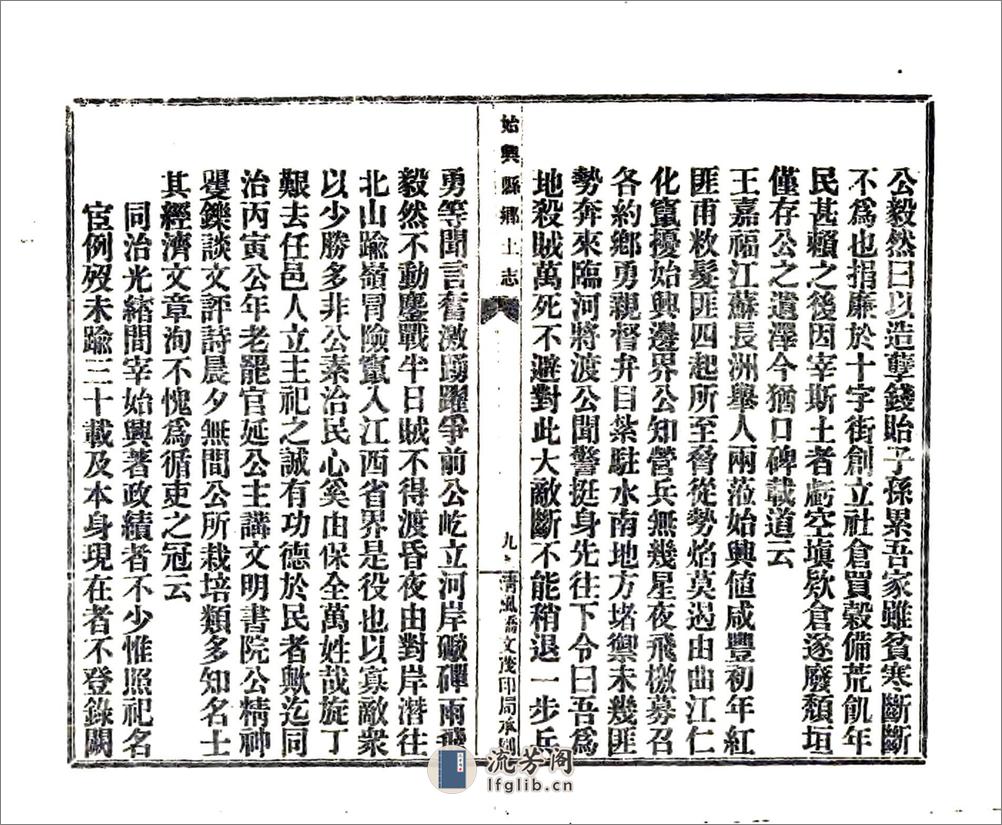 公毅然曰以造孽錢貽子孫累吾家雖貧寒斷斷
不爲也捐廉於十字街創立社倉買穀備荒飢年
民甚賴之後因宰斯土者虧空塡欵倉遂廢頹垣
僅存公之遺澤今猶口碑載道云
王嘉福江蘇長洲擧人兩蒞始興値咸豐初年紅
匪甫敉髮匪四起所至脅從勢焰莫遏由曲江仁
化竄擾始興邊界公知營兵無幾星夜飛檄募召
各約鄉勇親督弁目紮駐水南地方堵禦未幾匪
勢奔來臨河將渡公聞警挺身先往下令曰吾爲
地殺賊萬死不避對此大敵斷不能稍退一步兵
始興縣鄉土志
九
淸風橋文茂印局承刻
勇等聞言奮激踴躍爭前公屹立河岸礮磾雨飛
毅然不動鏖戰半日賊不得渡昏夜由對岸潛往
北山踰嶺冒險竄入江西省界是役也以寡敵衆
以少勝多非公素治民心奚由保全萬姓哉旋丁
艱去任邑人立主祀之誠有功德於民者歟迄同
治丙寅公年老罷官延公主講文明書院公精神
矍鑠談文評詩晨夕無間公所栽培類多知名士
其經濟文章洵不愧爲循吏之冠云
同治光緖間宰始興著政績者不少惟照祀名
宦例歿未踰三十載及本身現在者不登錄闕
流芳阁
lfglib.cn